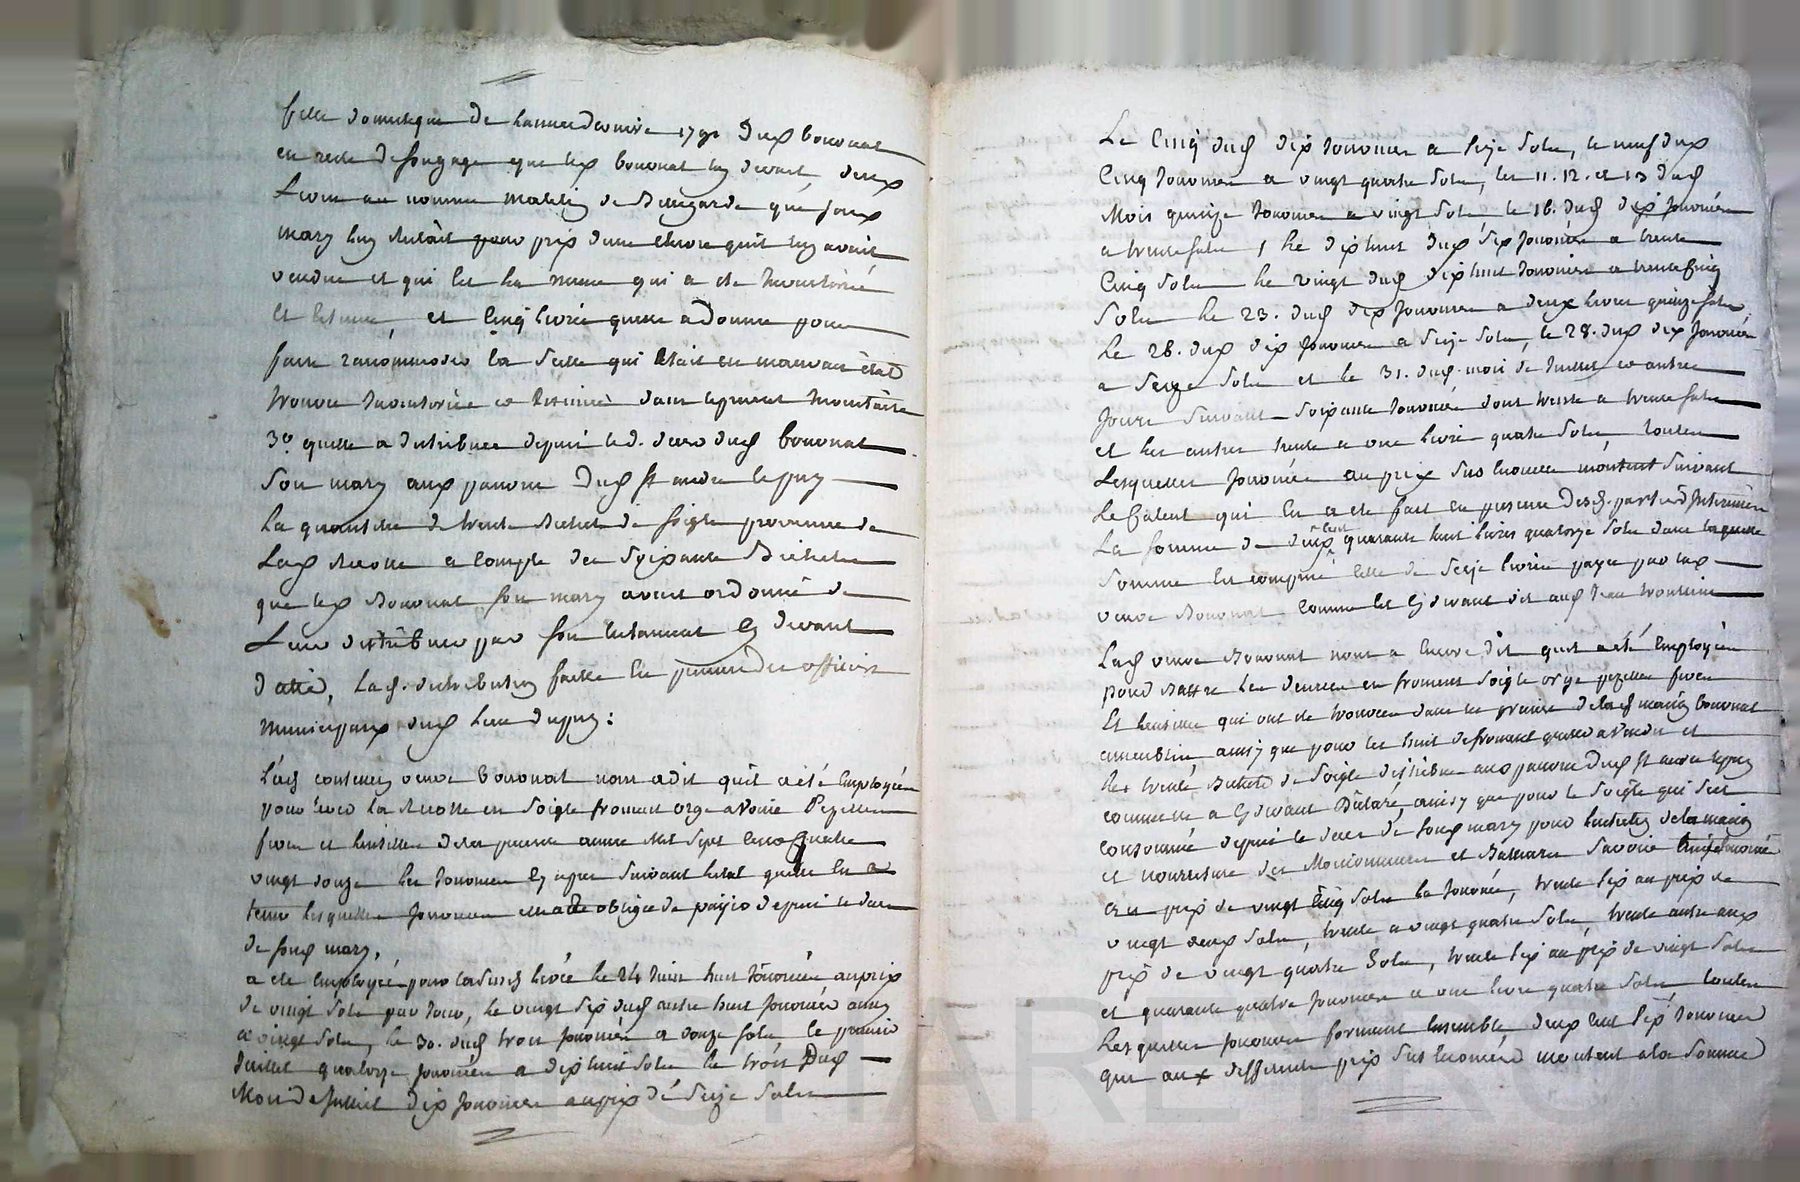 fille domestique de l'année dernière 1791 dud. bouvnat
en reste de son gage que led. bouvnat luy devait, deux
Livres au nommé Mathieu de Bellegarde que son d.
mary luy devait pour prix d'une chevre qu'il luy avait
vendue et qui est la meme qui a ete Inventoriée
Et Estimée, et Cinq livres quelle a donné pour
faire racommoder la Selle qui Etait en mauvais état
trouvée Inventoriée et Estimée dans le present Inventaire
3° quelle a distribuée depuis le d. deces dud. bouvnat
Son mary aux pauvres Dud. St andré le puy
La quantité de trente Bichets de soigle provenue de
Lad. Recolte a Compte des Soixante Bichets
que led. Bouvnat son mary avait ordonné de
Leur distribuer par son testament Cy devant
Datté, Lad. distribution faitte En presence des officiers
Municipaux dud. lieu dupuy :
Lad. veuve bouvnat nous a dit quil a été Employé
pour lever la Recolte en Soigle froment orge avoine
feves et lentilles de la presente année Mil Sept Cent Quatre
vingt douze les Journées Cy apres Suivant l'etat quelle En a
tenu lesquelles Journées elle a été obligée de payer depuis le deces
de son d. mary,
a ete Employé pour lad. levée le 24 Juin huit Journées au prix
de vingt Sols par Jour, le vingt Six dud. autre huit Journées aussy
a vingt Sols, le 30. dud. trois Journées a douze Sols le premier
Juillet quatorze Journées a dix huit Sols le trois Dud.
Mois de Juillet dix Journées au prix de Seize Sols
Le Cinq dud. dix Journées a Seize Sols, le neuf dud.
Cinq Journées a vingt quatre Sols, les 11. 12. et 13 dud.
Mois quinze Journées a vingt Sols le 16. dud. dix Journées
a trente Sols, Le dix huit dud. dix Journées a trente
Cinq Sols le vingt dud. dix huit Journées a trente Cinq
Sols le 23. dud. dix Journées a deux livres quinze Sols
le 26. dud. dix Journées a Seize Sols, le 28. dud. dix Journées
a Seize Sols et le 31. dud. mois de Juillet et autres
Jours Suivant Soixante Journées dont trente a trente Sols
et les autres trente a une livre quatre Sols, toutes
Lesquelles Journées au prix Sus Enoncée montent Suivant
Le Calcul qui En a ete fait En presence Desd. parties
La Somme de deux Cent quarante huit livres quatorze Sols dans laquelle
Somme Est compris Celle de Seize livres payée par lad.
veuve Bouvnat Comme Est Cy devant dit aud. Jean
Lad. veuve Bouvnat nous a Encore dit quil a été Employé
pour Battre les denrées en froment Soigle orge feves
Et lentilles qui ont ete trouvées dans les greniers de lad. maison bouvnat
ainsy que pour les huit de froment quelle a vendu et
les trente Bichets de Soigle distribués aux pauvres Dud. St andré lepuy
comme elle a Cy devant Déclaré, ainsy que pour le Soigle qui S'est
consommé depuis le deces de son d. mary pour l'entretien de la maison
et nourriture des Moissonneurs et Batteurs Savoir
au prix de vingt Cinq Sols la Journée, trente Six au prix de
vingt deux Sols, trente a vingt quatre Sols, trente autre aux
prix de vingt quatre Sols, trente Six au prix de vingt Sols
et quarante quatre Journées a une livre quatre Sols, toutes
lesquelles Journées formant Ensemble deux cent Six Journées
qui aux differents prix Sus Enoncée montent a la Somme